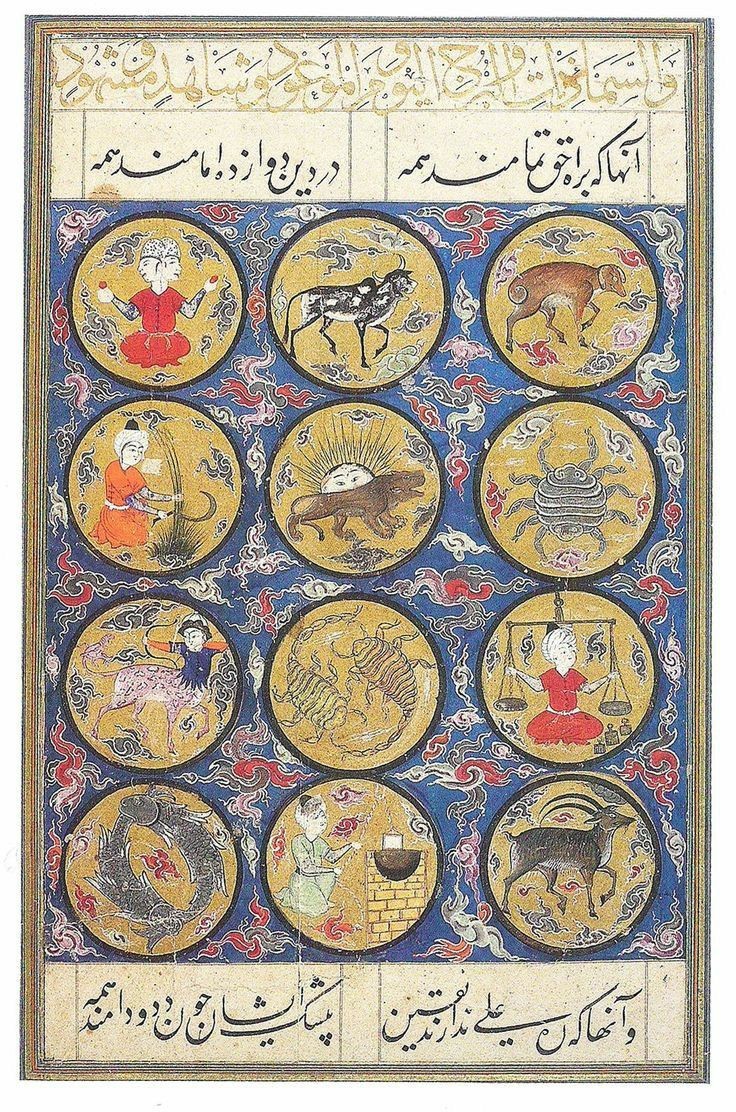 والسماء ذات البروج واليوم الموعود وشاهد ومشهود
آنها که براه حق تمامند همه در دین دوازده امامند همه
و آنها که ره علی ندارند یقین بیشک ایشان چون دد و دامند همه